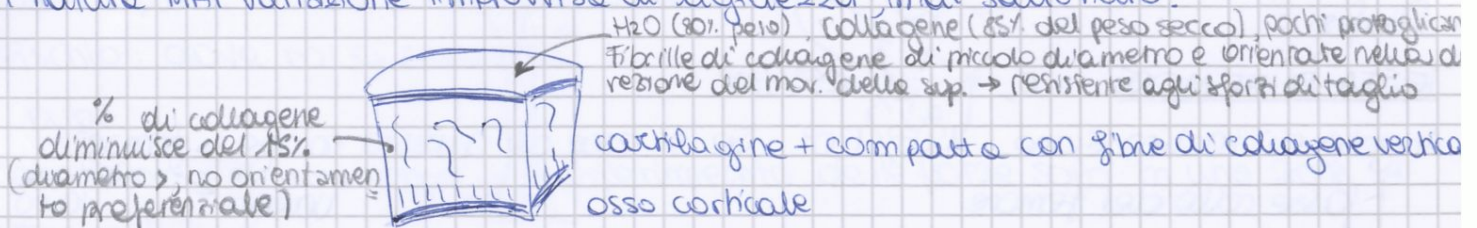 H2O (80% peso), collagene (85% del peso secco), pochi proteoglican
Fibrille di collagene di piccolo diametro e orientate nella di
rezione del mov. delle sup. → resistente agli sforzi di taglio
% di collagene
diminuisce del 15%
(diametro >, no orientamen
to preferenziale)
cartilagine + compatta con fibre di collagene vertica
osso corticale